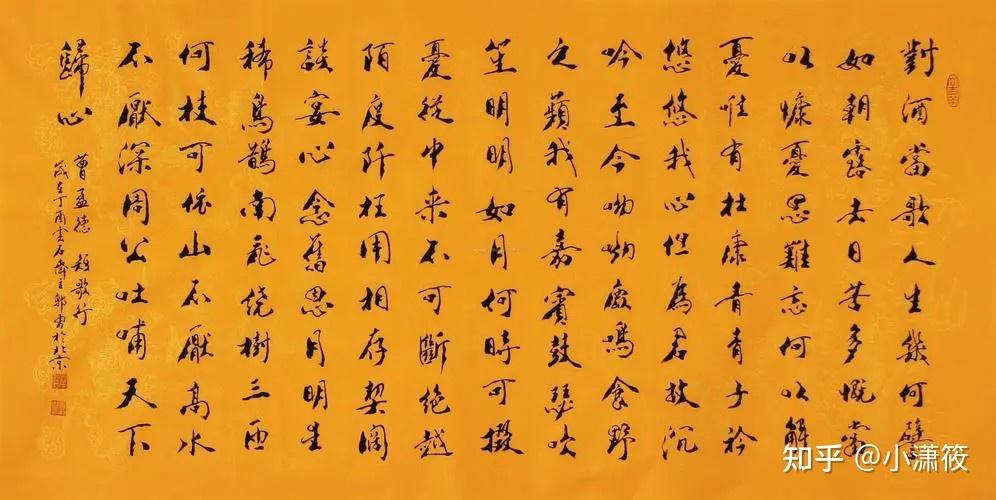 對酒當歌人生幾何譬
如朝露去日苦多慨當
以慷憂思難忘何以解
憂唯有杜康青青子衿
悠悠我心但為君故沉
吟至今呦呦鹿鳴食野
之蘋我有嘉賓鼓瑟吹
笙明明如月何時可掇
憂從中来不可斷絶越
陌度阡枉用相存契闊
談宴心念舊恩月明星
稀烏鵲南飛繞樹三匝
何枝可依山不厭高水
不厭深周公吐哺天下
歸心
曹孟德 短歌行
歲在丁酉雲石齋主郭勇於北京
知乎 @小潇筱